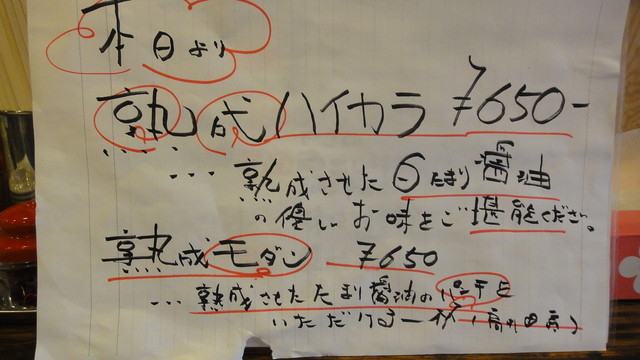 本日より
熟成ハイカラ ¥650-
... 熟成させた白たまり醤油
の優しいお味をご堪能ください。
熟成モダン ¥650
... 熟成させたたまり醤油のパンチと
いただける一杯